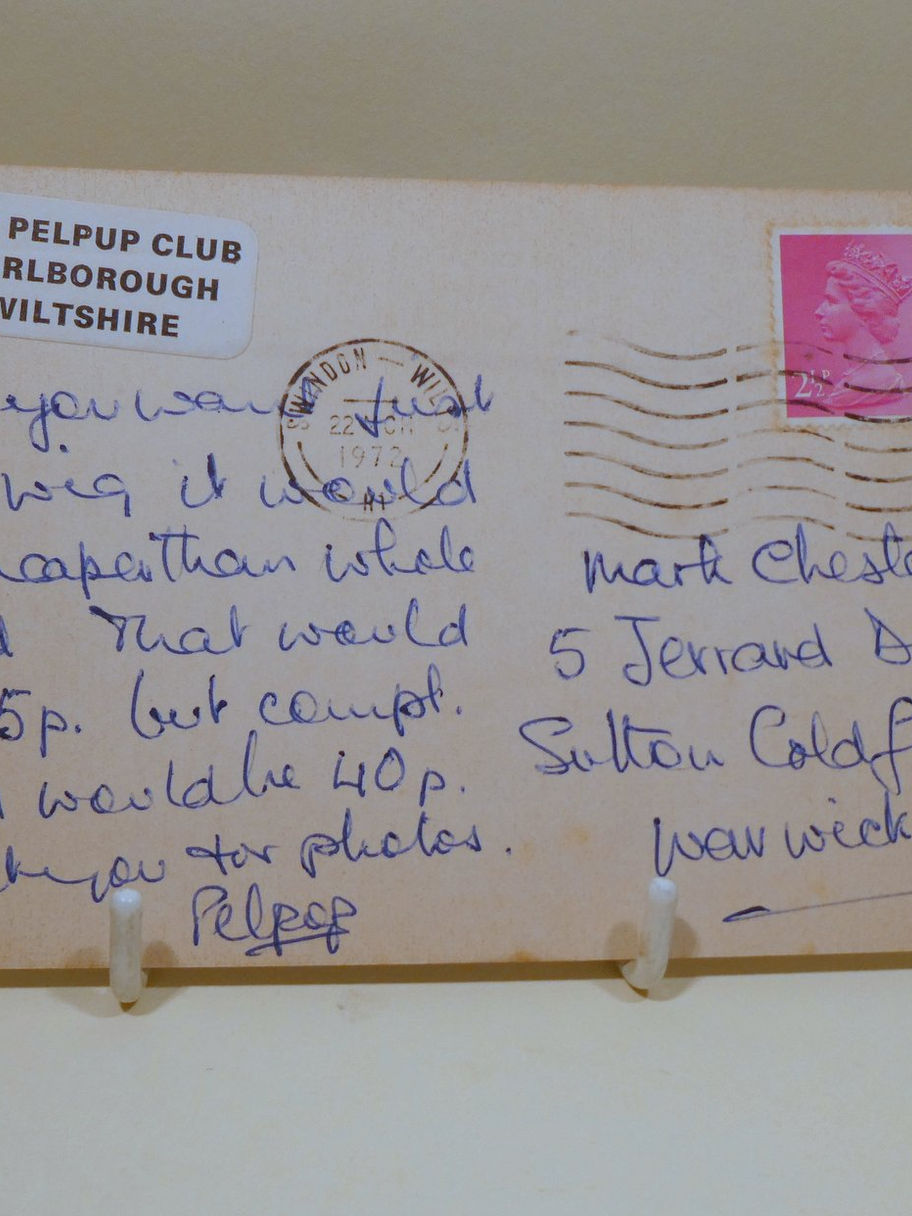 PELPUP CLUB
RLBOROUGH
WILTSHIRE
SWINDON WILTS
22
1972
2½P
you want just
wig it would
eaper than whole
That would
5p. but compt.
would be 40p.
you for photos.
Pelpop
Mark Cheste
5 Jerrard D
Sutton Coldf
Warwick